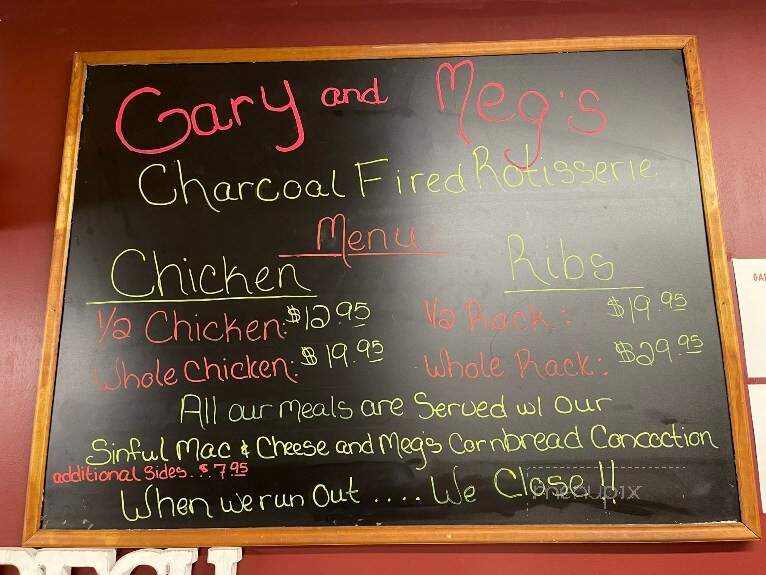 Gary and Meg's
Charcoal Fired Rotisserie
Menu
Chicken
1/2 Chicken: $12.95
Whole Chicken: $19.95
Ribs
1/2 Rack: $19.95
Whole Rack: $29.95
All our meals are Served w/ Our
Sinful Mac & Cheese and Meg's Cornbread Concoction
additional Sides.. $.7.95
When we run Out .... We Close!!
menupix